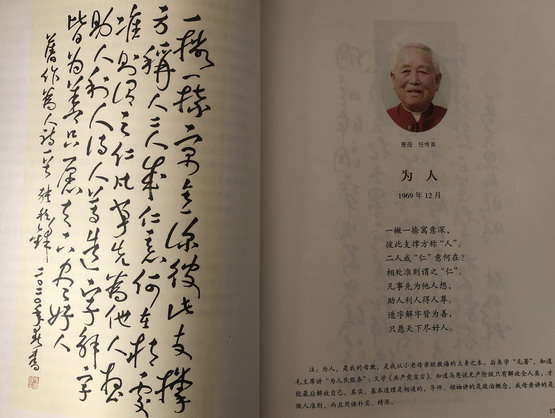 一撇一捺寓意深彼此支撑
方稱人二人成仁意何在相處
準則谓之仁凡事先為他人想
助人利人得人尊造字解字
皆為善只愿天下尽好人
舊作為人詩一首
二〇二〇年秋書
慈母 任传英
为人
1969 年 12 月
一撇一捺寓意深，
彼此支撑方称“人”。
二人成“仁”意何在？
相处准则谓之“仁”。
凡事先为他人想，
助人利人得人尊。
造字解字皆为善，
只愿天下尽好人。
注：为人，是我的母教，是我从小老母亲教诲的立身之本，后来学“毛著”，知道
毛主席讲“为人民服务”；又学《共产党宣言》，知道马恩说无产阶级只有解放全人类，才
能最后解放自己。其实，基本道理是相通的，导师、领袖讲的是政治概念，我母亲讲的是
做人准则，而且用语朴实，精炼。